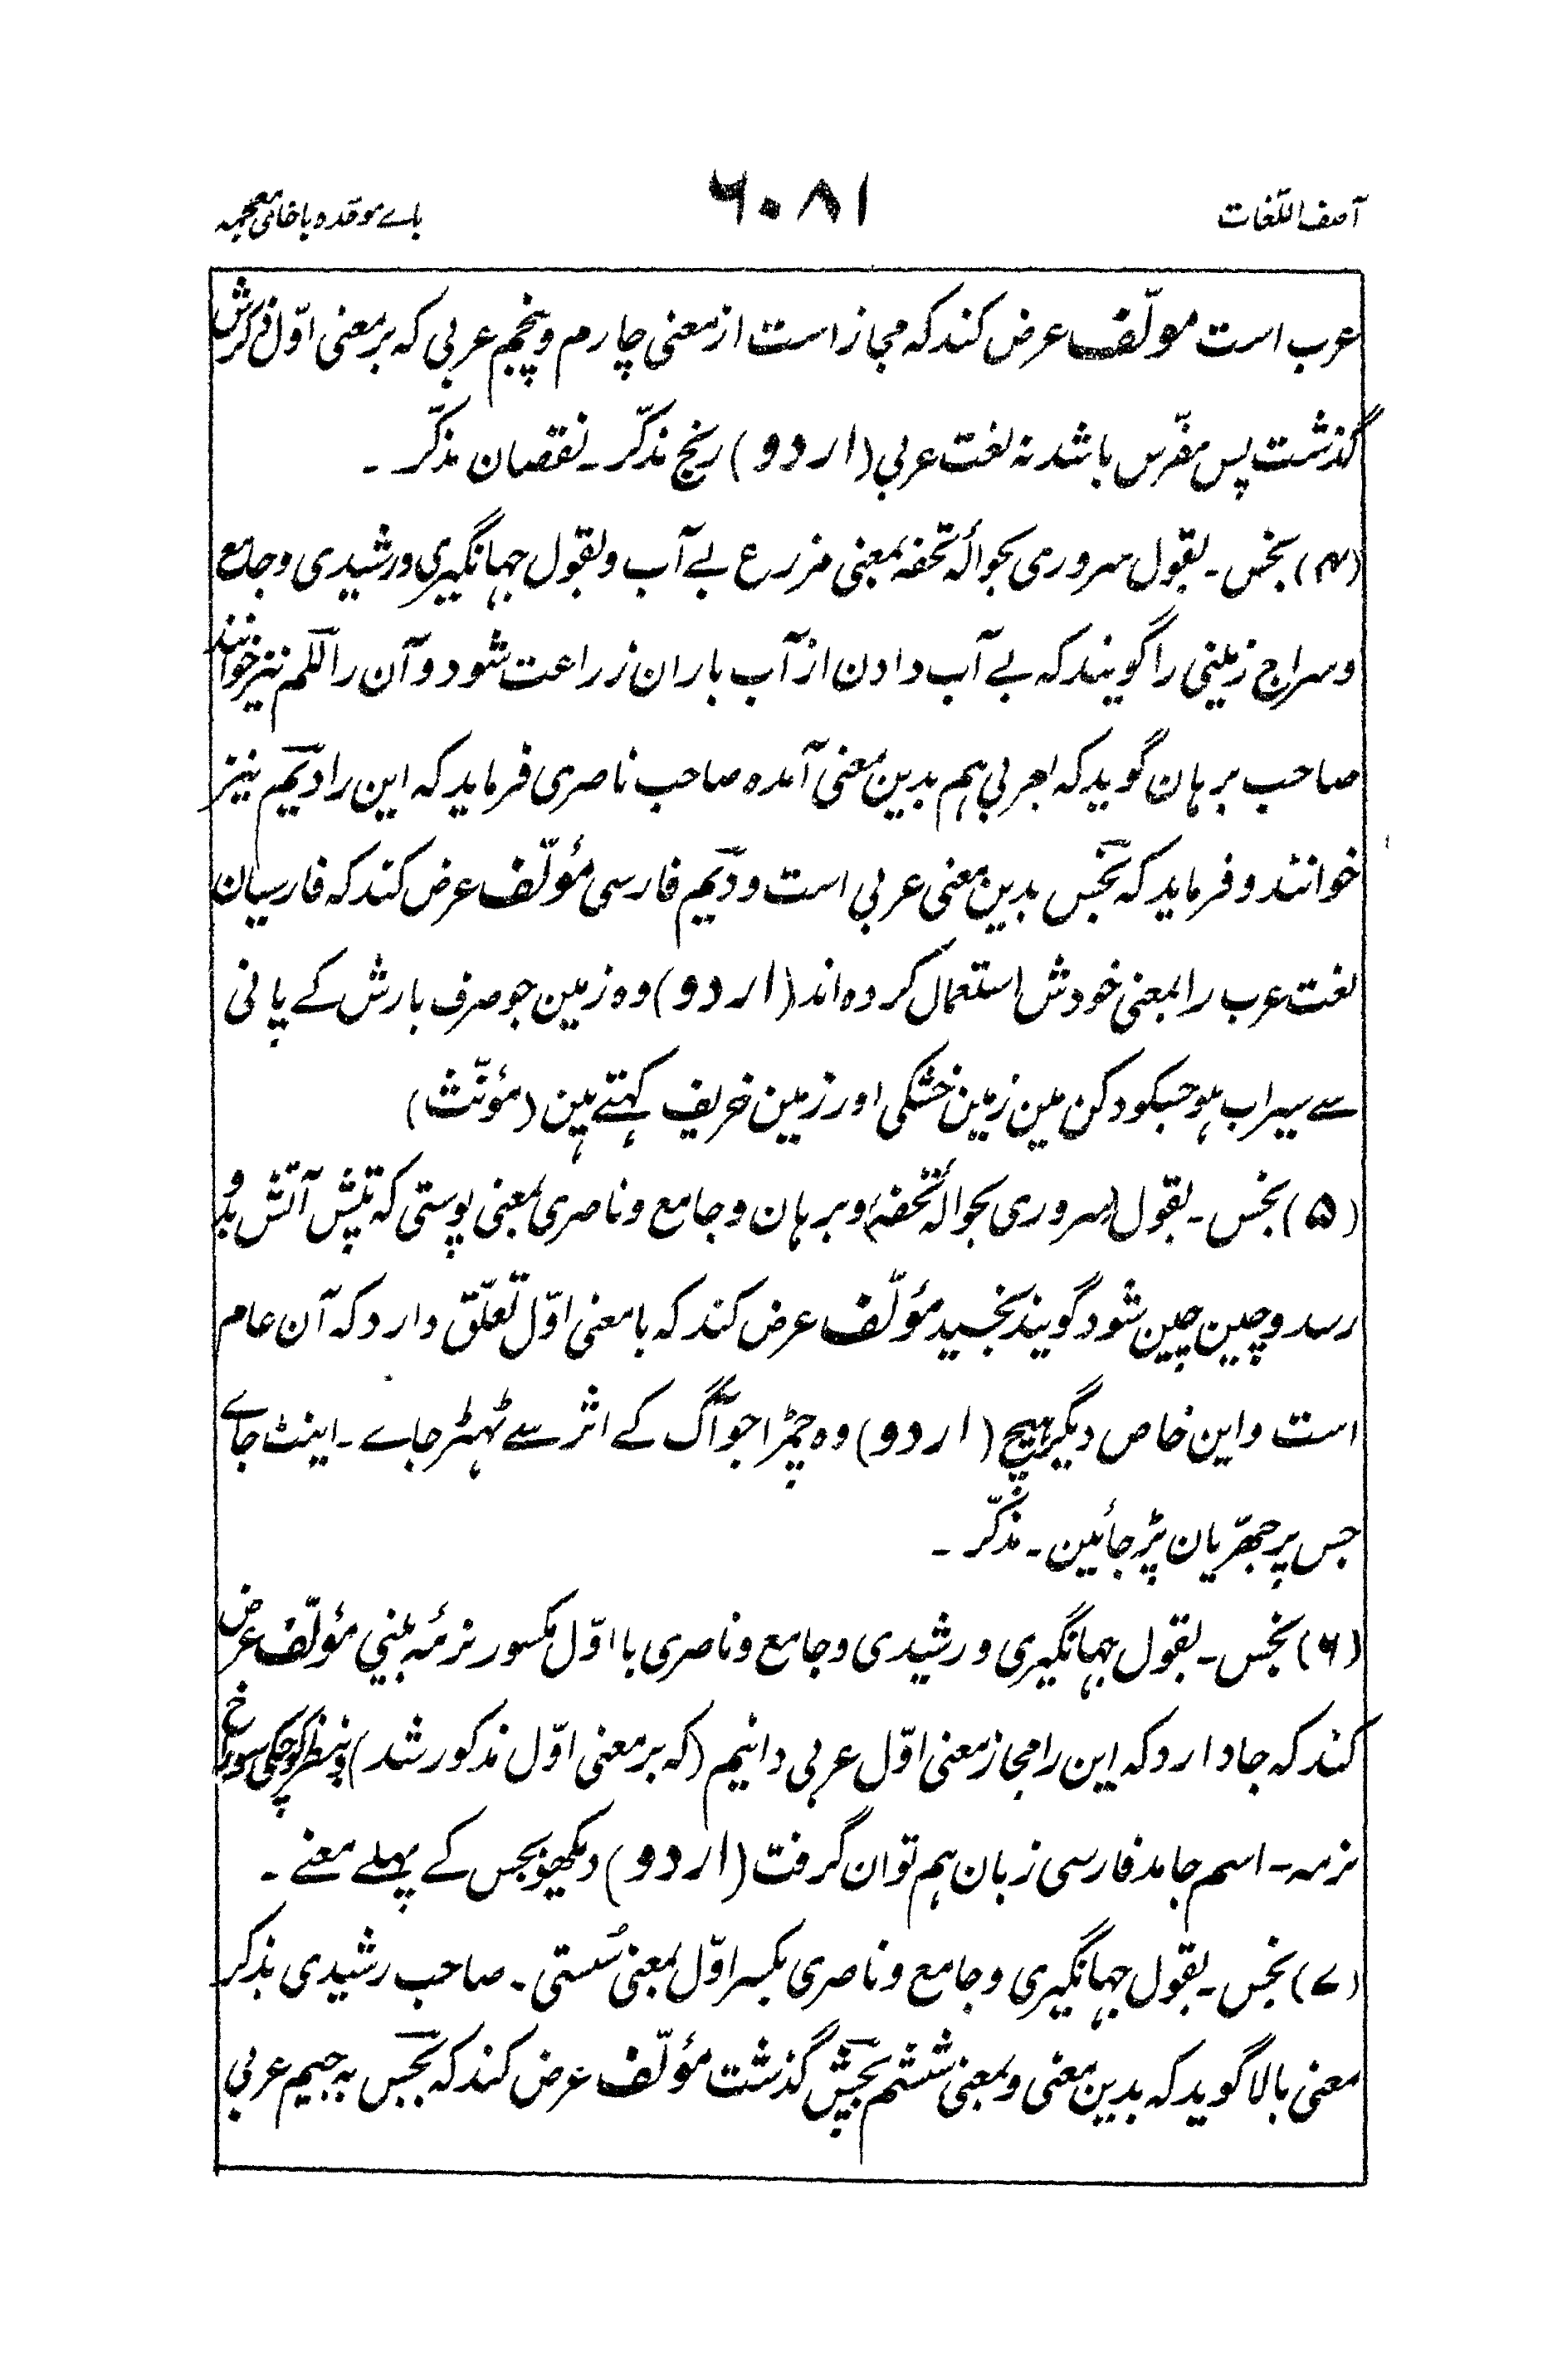 آصف اللّغات
۶۰۸۱
باے موحّدہ باخای معجمہ
عرب است مولّف عرض کند کہ مجاز است از معنی چارم و پنجم عربی کہ بر معنی اوّل ذکرش
گذشت پس مفرّس باشد نہ لغت عربی (اردو) رنج مذکّر ۔ نقصان مذکّر ۔
(۴) بخس ۔ بقول سروری بحوالۂ تحفہ بمعنی مزرع بے آب و بقول جہانگیری و رشیدی و جامع
و سراج زمینی را گویند کہ بے آب دادن از آب باران زراعت شود و آن را للم نیز خوانند
صاحب برہان گوید کہ بعربی ہم بدین معنی آمدہ صاحب ناصری فرماید کہ این را دیم نیز
خوانند و فرماید کہ بخس بدین معنی عربی است و دیم فارسی مؤلّف عرض کند کہ فارسیان
لغت عرب را بمعنی خودش استعمال کردہ اند (اردو) وہ زمین جو صرف بارش کے پانی
سے سیراب ہو جسکو دکن مین زمین خشکی اور زمین خریف کہتے ہین (مؤنّث)
(۵) بخس ۔ بقول سروری بحوالۂ تحفہ و برہان و جامع و ناصری بمعنی پوستی کہ تپش آتش بدو
رسد و چین چین شود گویند بخسید مؤلّف عرض کند کہ با معنی اوّل تعلّق دارد کہ آن عام
است و این خاص دیگر ہیچ (اردو) وہ چمڑا جو آگ کے اثر سے ٹہٹر جاے ۔ اینٹ جاے
جس پر جھرّیان پڑ جائین ۔ مذکّر ۔
(۶) بخس ۔ بقول جہانگیری و رشیدی و جامع و ناصری با اوّل مکسور نرمۂ بینی مؤلّف عرض
کند کہ جا دارد کہ این را مجاز معنی اوّل عربی دانیم (کہ بر معنی اوّل مذکور شد) و بنظر کوچکی سوراخ
نرمہ ۔ اسم جامد فارسی زبان ہم توان گرفت (اردو) دیکھو بخس کے پہلے معنے ۔
(۷) بخس ۔ بقول جہانگیری و جامع و ناصری بکسر اوّل بمعنی سُستی ۔ صاحب رشیدی بذکر
معنی بالا گوید کہ بدین معنی و بمعنی ششم بجش گذشت مؤلّف عرض کند کہ بجس بہ جیم عربی